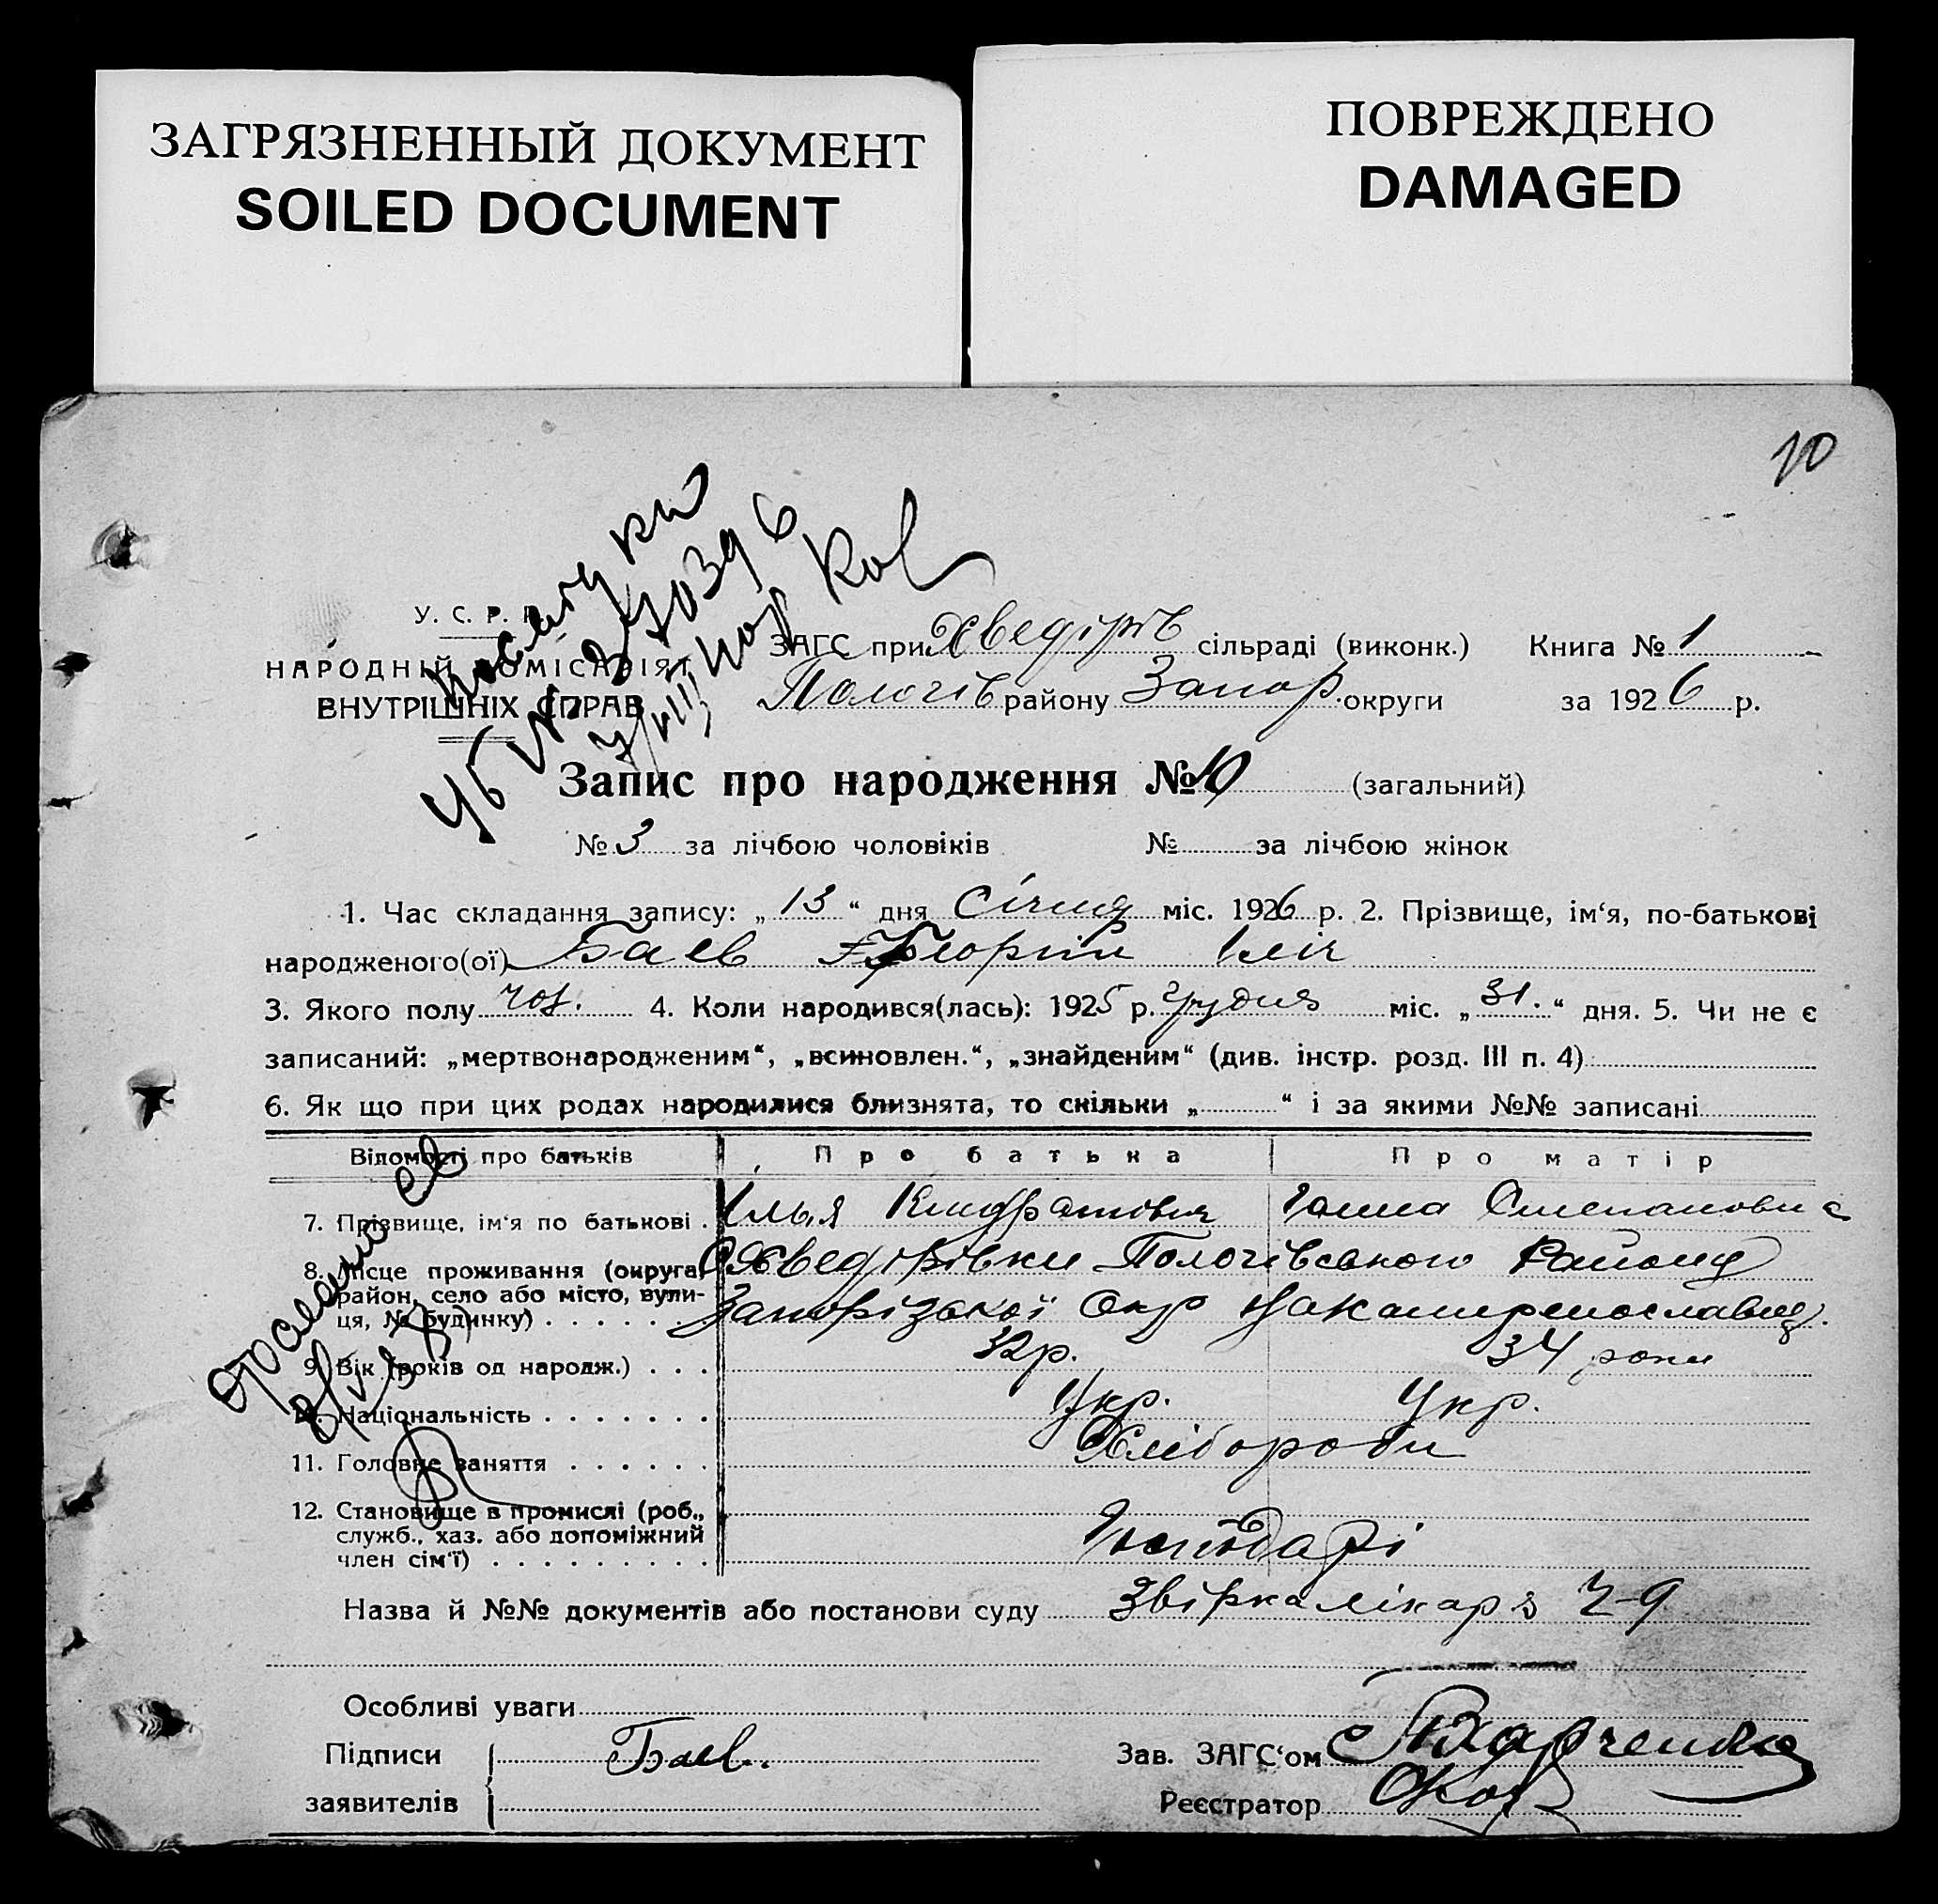 ЗАГРЯЗНЕННЫЙ ДОКУМЕНТ
SOILED DOCUMENT
ПОВРЕЖДЕНО
DAMAGED
10
У. С. Р. Р.
НАРОДНІЙ КОМІСАРІЯТ
ВНУТРІШНІХ СПРАВ
ЗАГС при Хведірів сільраді (виконк.) Книга № 1
Пологів району Запор. округи за 1926 р.
Запис про народження № 10 (загальний)
№ 3 за лічбою чоловіків № за лічбою жінок
1. Час складання запису: „13“ дня Січня міс. 1926 р. 2. Прізвище, ім‘я, по-батькові
народженого(ої) Баев Георгій Іліч
3. Якого полу чол. 4. Коли народився(лась): 1925 р. Грудня міс. „31.“ дня. 5. Чи не є
записаний: „мертвонародженим“, „всиновлен.“, „знайденим“ (див. інстр. розд. III п. 4)
6. Як що при цих родах народилися близнята, то скільки „ “ і за якими №№ записані
Відомості про батьків Про батька Про матір
7. Прізвище, ім‘я по батькові . Илья Кіндратович Ганна Степановна
8. Місце проживання (округа, Хведірівки Пологівського Району
район, село або місто, вули-
ця, № будинку) . . . . . . Запорізької Окр
9. Вік (років од народж.) . . . 32 р. 34 роки
10. Національність . . . . . . . Укр. Укр.
11. Головне заняття . . . . . . Хлібороби
12. Становище в промислі (роб.,
служб., хаз. або допоміжний
член сім‘ї) . . . . . . . . . Господарі
Назва й №№ документів або постанови суду Звірка лікаря Ч-9
Особливі уваги
Підписи Баев.
Зав. ЗАГС‘ом
заявителів
Реєстратор